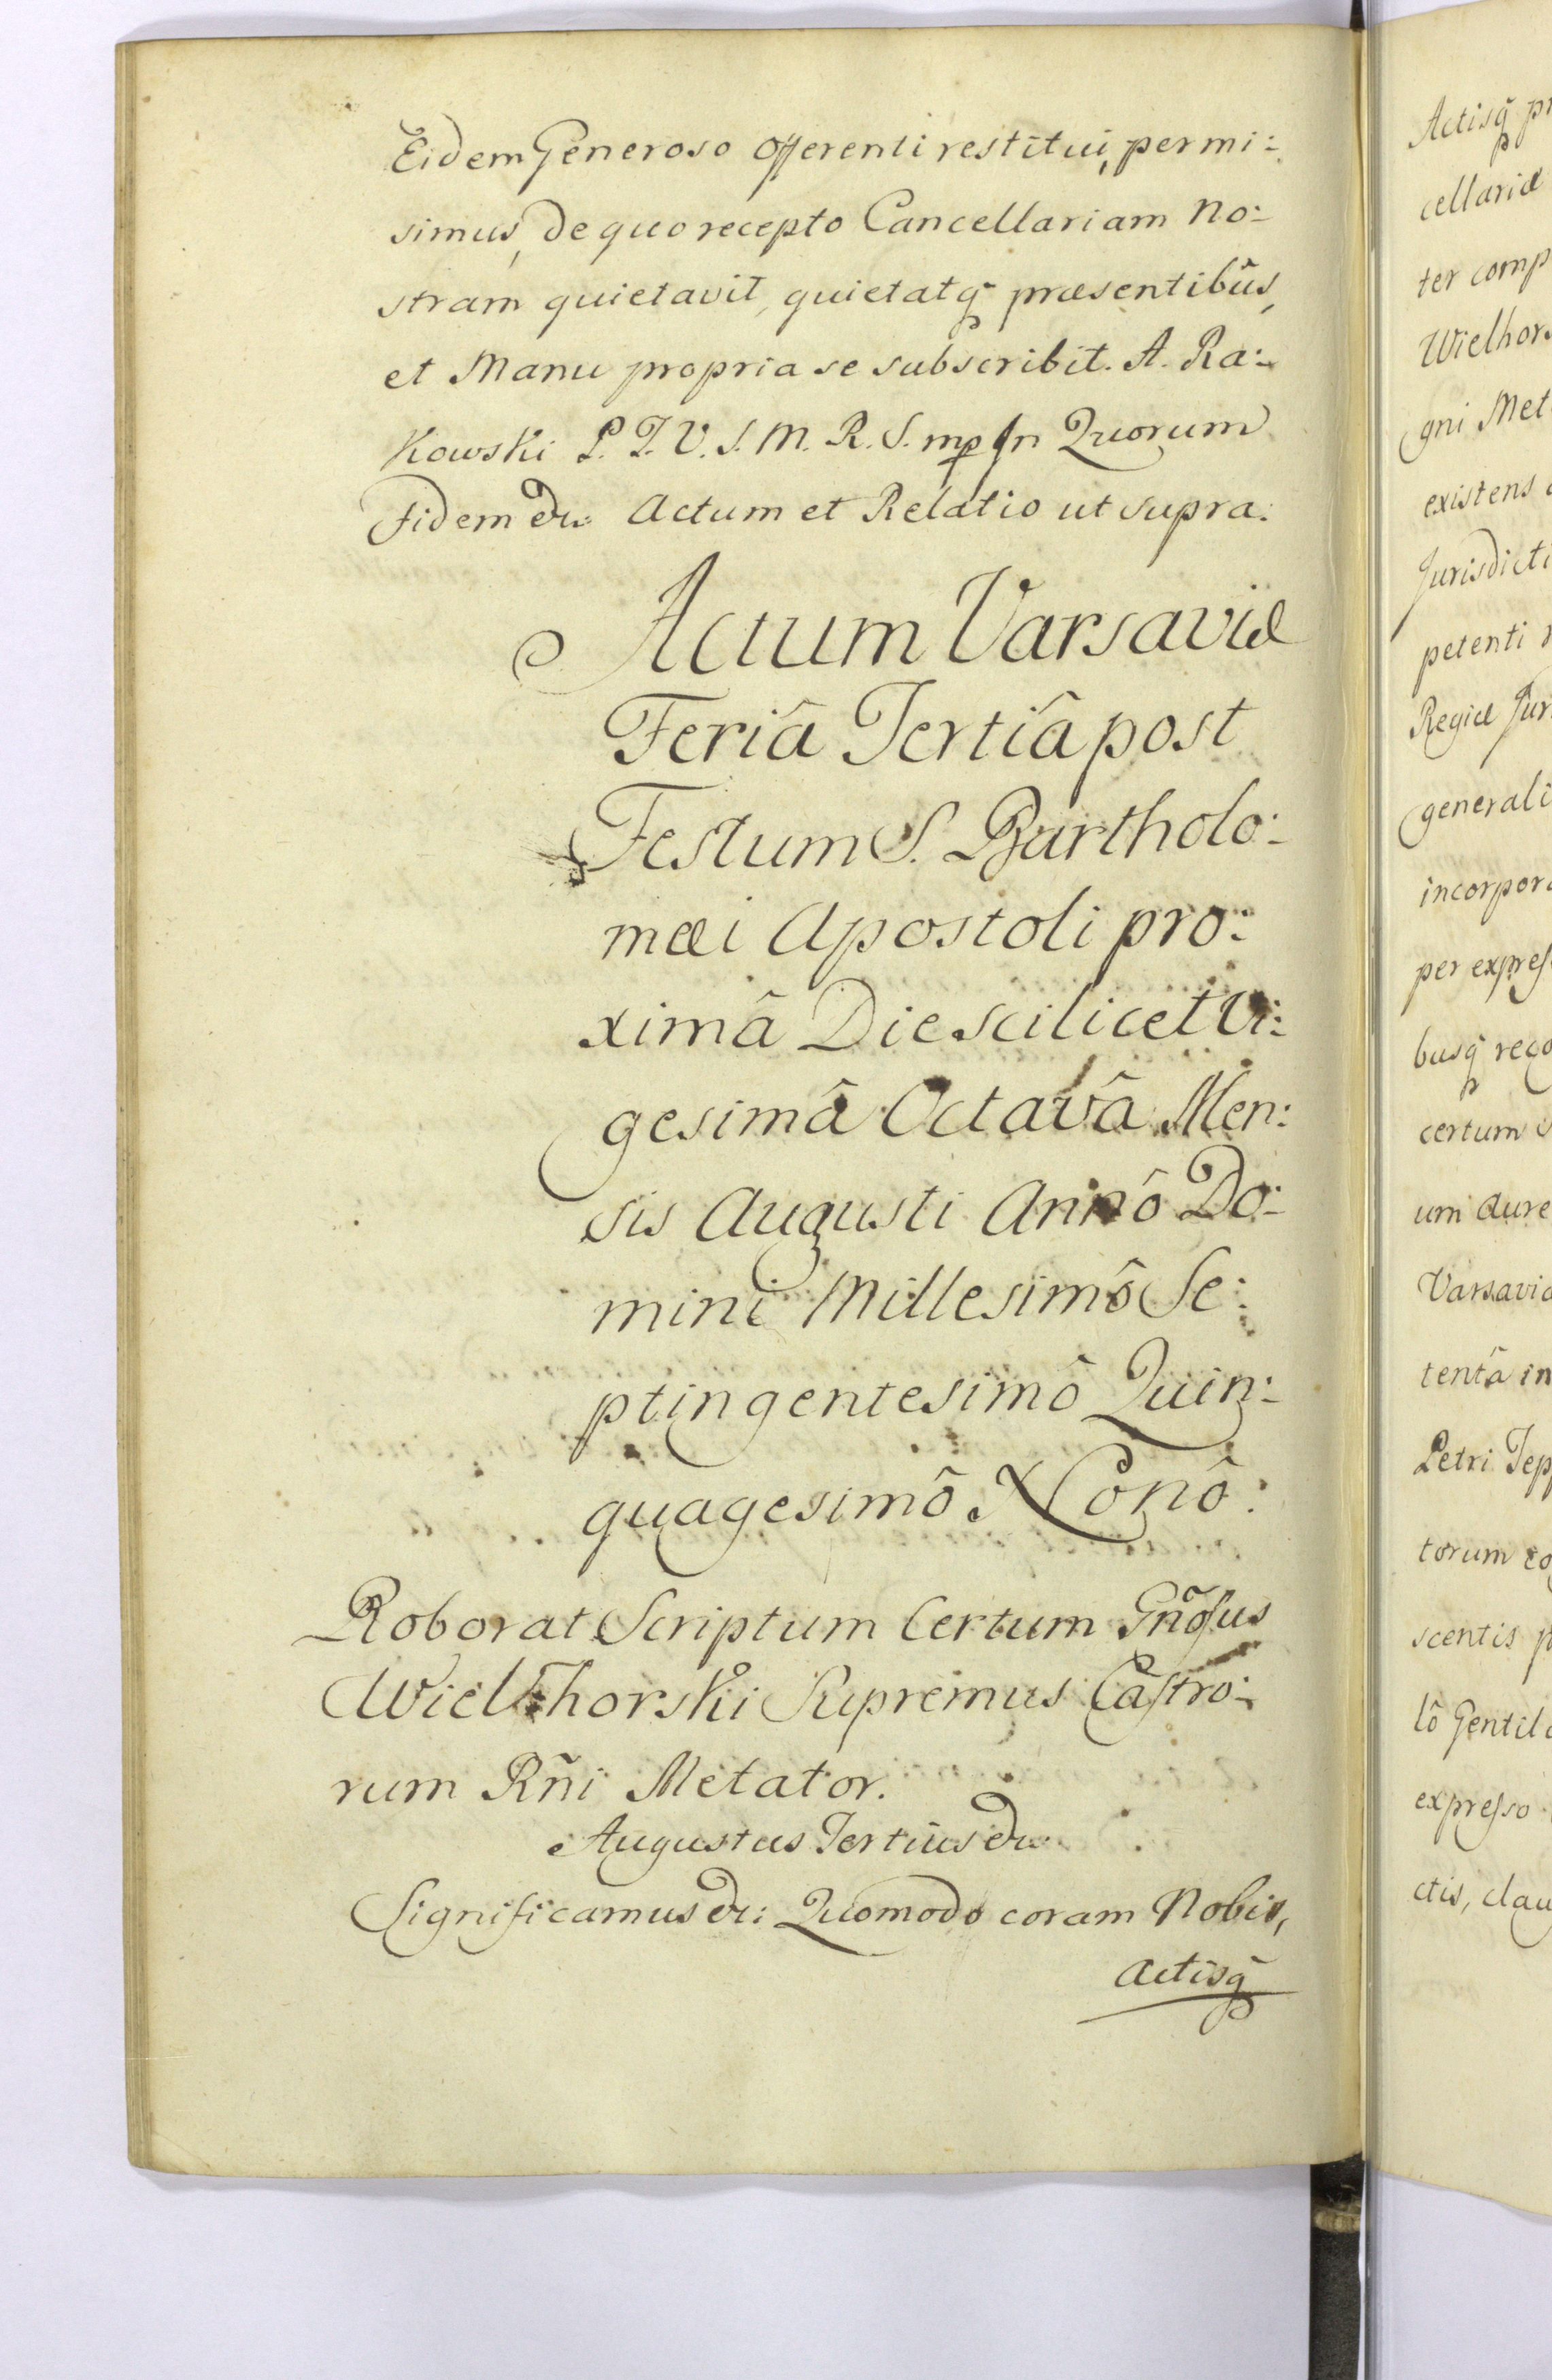 Eidem Generoso offerenti restitui, permi:
simus, de quo recepto Cancellariam No:
stram quietavit, quietatq̃ præsentibũs,
et Manu propria se subscribit. A. Ra:
Kowski P. T. V. S. M. R. S. mp In Quorum
Fidem &c. Actum et Relatio ut supra.
Actum Varsaviæ
Feriâ Tertiâ post
Festum S. Bartholo:
mæi Apostoli pro:
ximâ Die scilicet Vi:
gesimâ Octavâ Men:
sis Augusti Annô Do:
mini Millesimô Se:
ptingentesimô Quin:
quagesimô Nonô:
Roborat Scriptum Certum Gñosus
Wielhorski Supremus Castro:
rum Rñi Metator.
Augustus Tertius &c.
Significamus &c: Quomodo coram Nobis,
Actisq̃
Actisq̃
cellariæ
ter comp
Wielhors
gni Met
existens
Jurisdicti
petenti
Regiæ Jur
generali
incorpora
per expres
busq̃ reco
certum
um Aure
Varsavia
tentâ in
Petri Tep
torum
scentis
lô Gentil
expresso
ctis, clau